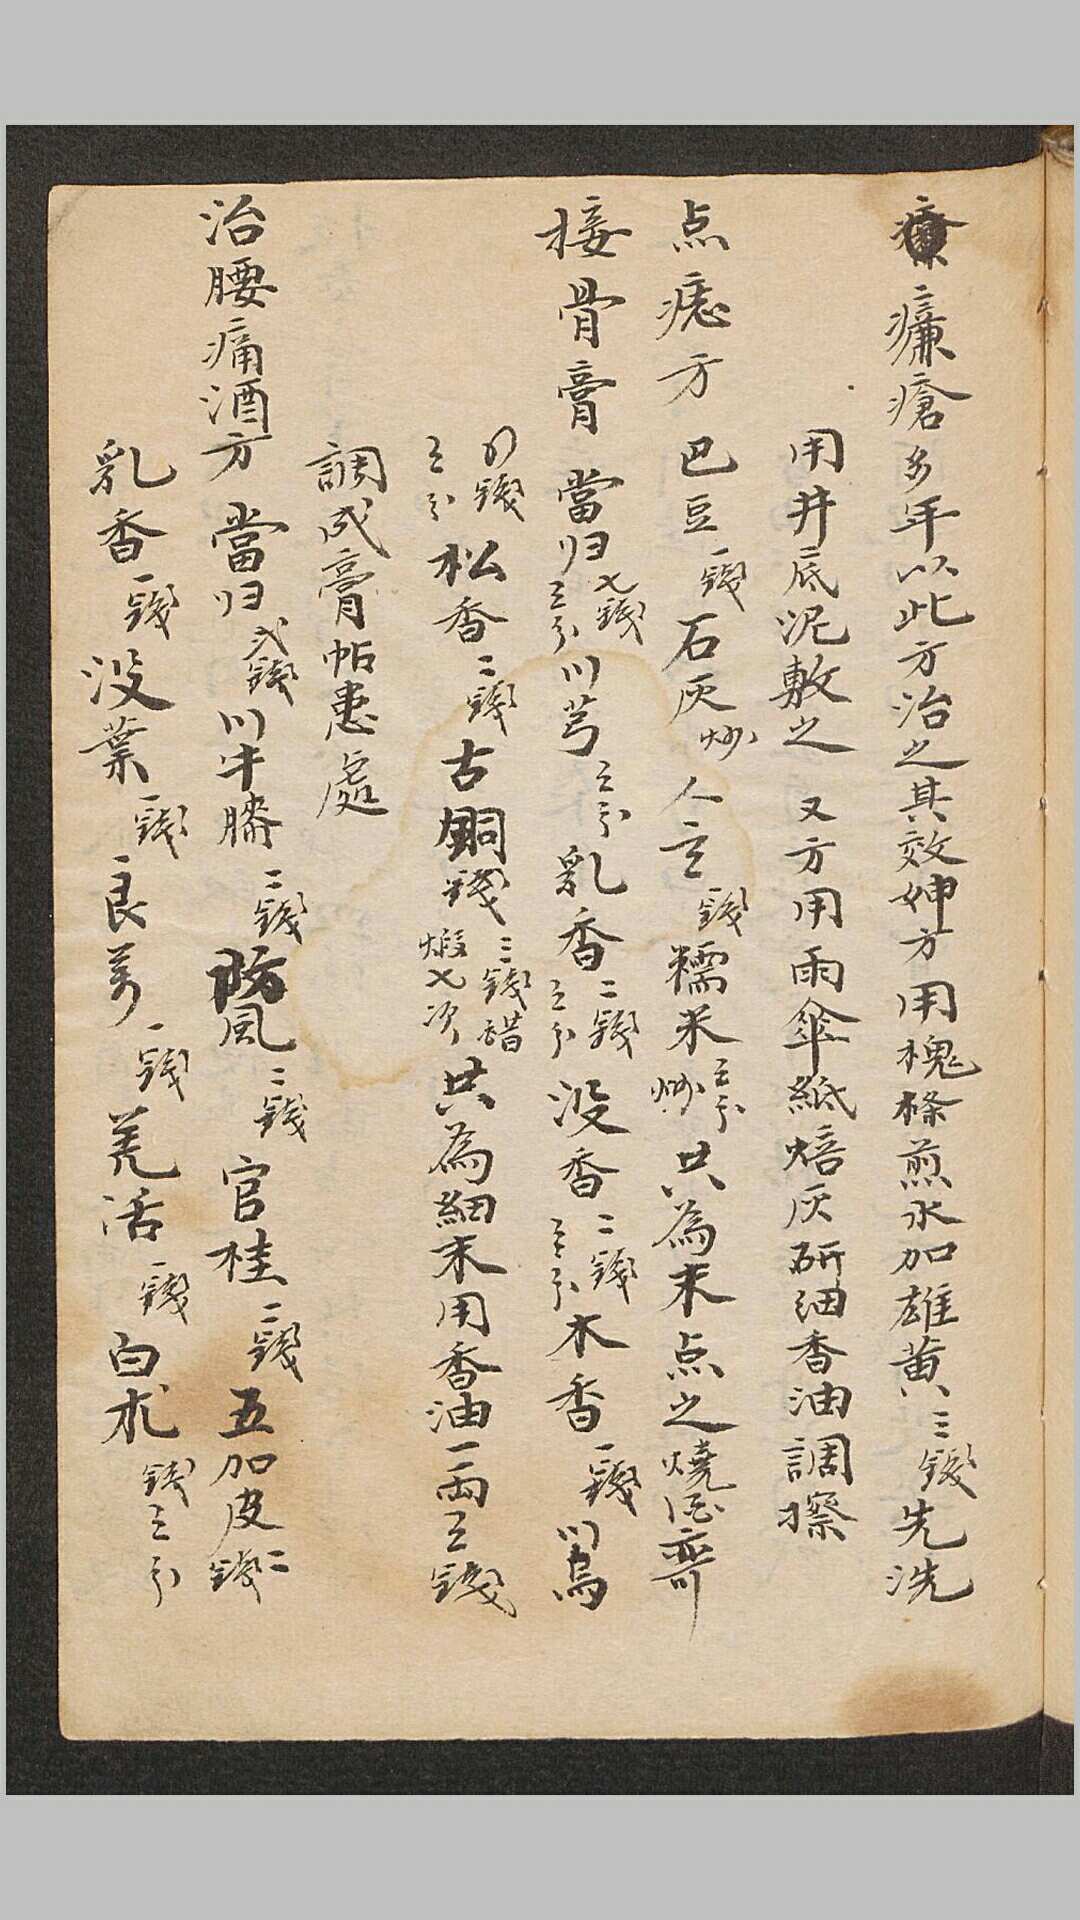 臁瘡多年以此方治之其效神方用槐條煎水加雄黄三錢先洗
用井底泥敷之 又方用雨傘紙焙灰研細香油調擦
点痣方 巴豆一錢石灰炒人言一錢糯米三分炒共為末点之燒酒
接骨膏 當归七錢三分川芎三分乳香二錢三分没香二錢三分木香一錢川烏
四錢三分松香二錢古銅錢三錢醋煅七次共為細末用香油一両三錢
調成膏帖患處
治腰痛酒方 當归弍錢川牛膝二錢防風二錢官桂二錢五加皮二錢
乳香一錢没葉一錢良姜一錢羌活一錢白朮錢三分